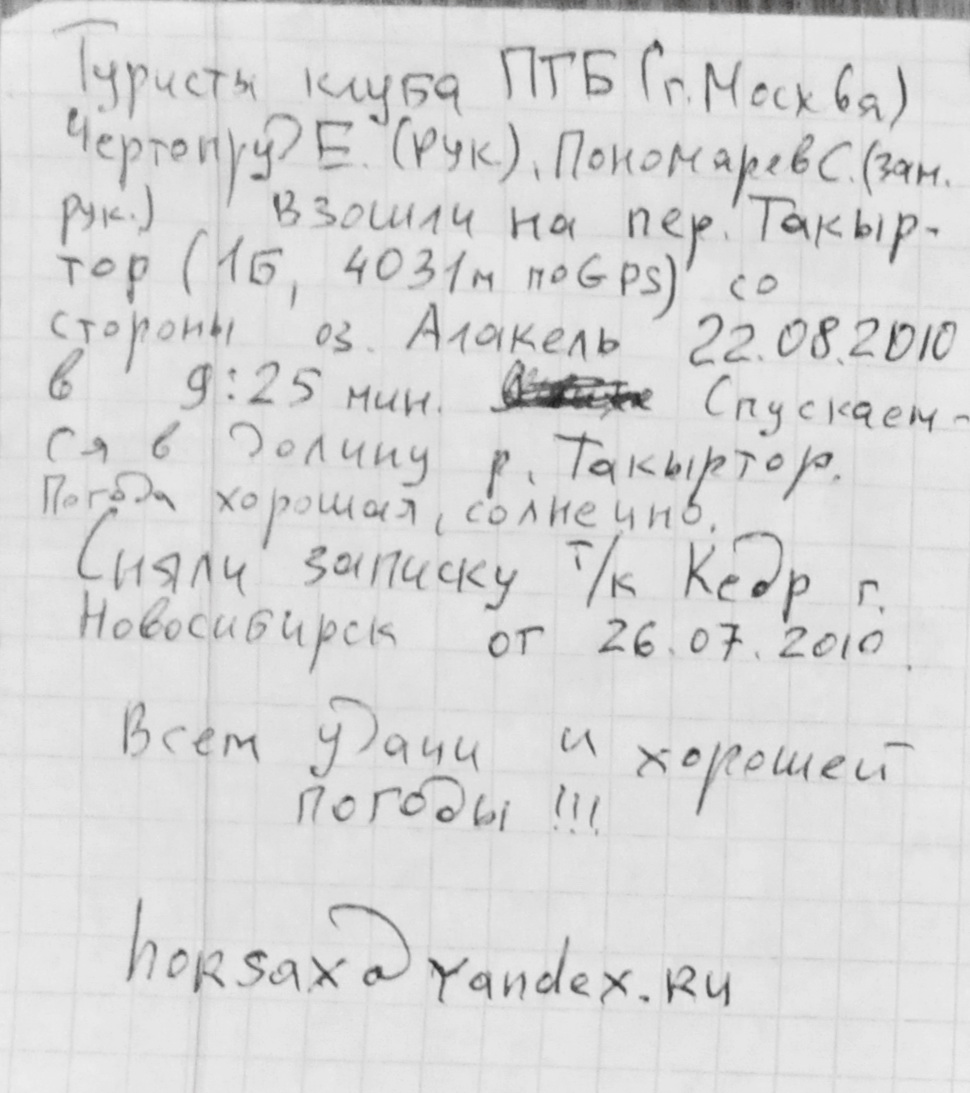 Туристы клуба ПТБ (г. Москва)
Чертопруд Е. (рук), Пономарев С. (зам.
рук.) взошли на пер. Такыр-
тор (1Б, 4031м по GPS) со
стороны оз. Алакель 22.08.2010
в 9:25 мин. Спускаем-
ся в долину р. Такыртор.
Погода хорошая, солнечно.
Сняли записку т/к Кедр г.
Новосибирск от 26.07.2010.
Всем удачи и хорошей
погоды !!!
horsax@yandex.ru